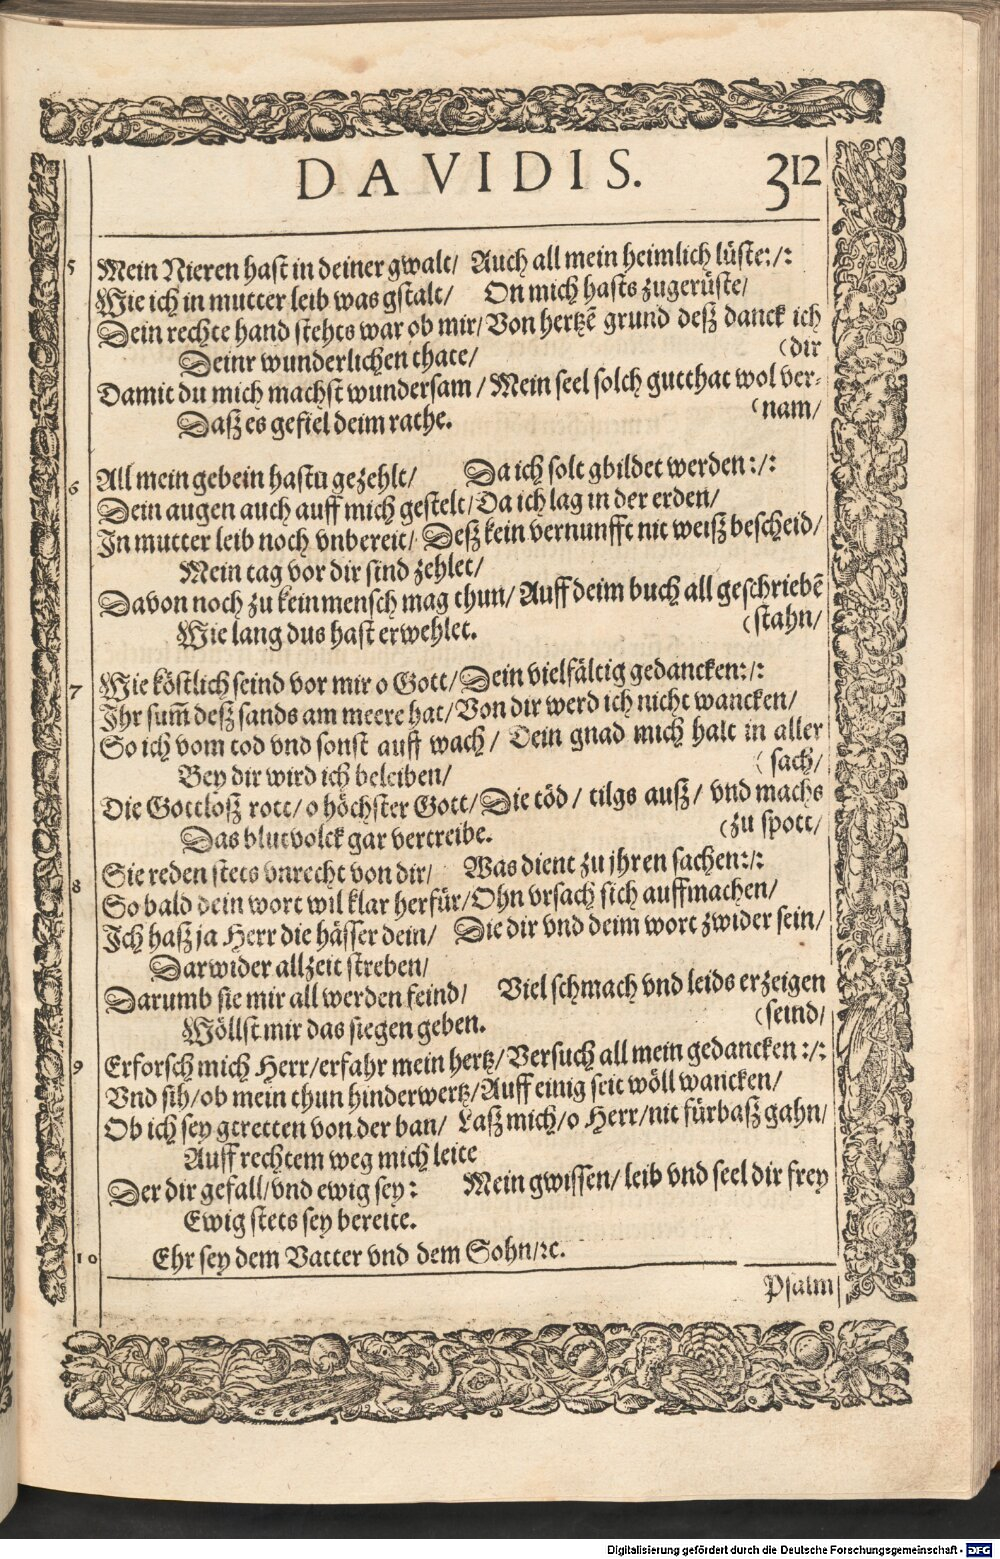 DAVIDIS. 312
5 Mein Nieren hast in deiner gwalt/ Auch all mein heimlich lüste:/:
Wie ich in mutter leib was gstalt/ On mich hasts zugerüste/
Dein rechte hand stehts war ob mir/ Von hertzē grund deß danck ich
Deinr wunderlichen thate/ (dir
Damit du mich machst wundersam/ Mein seel solch gutthat wol ver-
Daß es gefiel deim rathe. (nam/
6 All mein gebein hastu gezehlt/ Da ich solt gbildet werden:/:
Dein augen auch auff mich gestelt/ Da ich lag in der erden/
In mutter leib noch vnbereit/ Deß kein vernunfft nit weiß bescheid/
Mein tag vor dir sind zehlet/
Davon noch zu kein mensch mag thun/ Auff deim buch all geschriebē
Wie lang dus hast erwehlet. (stahn/
7 Wie köstlich seind vor mir o Gott/ Dein vielfältig gedancken:/:
Ihr sum̄ deß sands am meere hat/ Von dir werd ich nicht wancken/
So ich vom tod vnd sonst auff wach/ Dein gnad mich halt in aller
Bey dir wird ich beleiben/ (sach/
Die Gottloß rott/ o höchster Gott/ Die töd/ tilgs auß/ vnd machs
Das blutvolck gar vertreibe. (zu spott/
8 Sie reden stets vnrecht von dir/ Was dient zu jhren sachen:/:
So bald dein wort wil klar herfür/ Ohn vrsach sich auffmachen/
Ich haß ja Herr die hässer dein/ Die dir vnd deim wort zwider sein/
Darwider allzeit streben/
Darumb sie mir all werden feind/ Viel schmach vnd leids erzeigen
Wöllst mir das siegen geben. (seind/
9 Erforsch mich Herr/ erfahr mein hertz/ Versuch all mein gedancken:/:
Vnd sih/ ob mein thun hinderwertz/ Auff einig seit wöll wancken/
Ob ich sey gtretten von der ban/ Laß mich/ o Herr/ nit fürbaß gahn/
Auff rechtem weg mich leite
Der dir gefall/ vnd ewig sey: Mein gwissen/ leib vnd seel dir frey
Ewig stets sey bereite.
10 Ehr sey dem Vatter vnd dem Sohn/ ꝛc.
Psalm
Digitalisierung gefördert durch die Deutsche Forschungsgemeinschaft - DFG